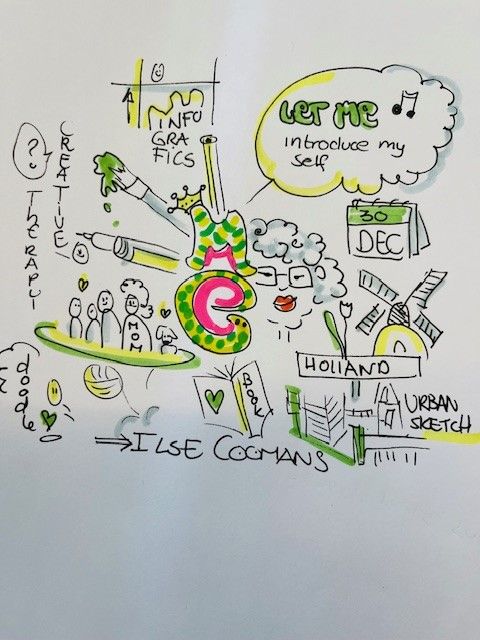 INFO
GRA
FICS
LET ME
introduce my
self
?
CREATIVE
THERAPUI
30
DEC
ME
MOM
HOLLAND
BOOK
doodle
URBAN
SKETCH
ILSE COOMANS